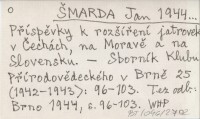 ŠMARDA Jan 1944...
Příspěvky k rozšíření jatrovek
v Čechách, na Moravě a na
Slovensku. — Sborník Klubu
Přírodovědeckého v Brně 25
(1942-1943): 96-103. Tez.odb:
Brno 1944, s. 96-103. WHP